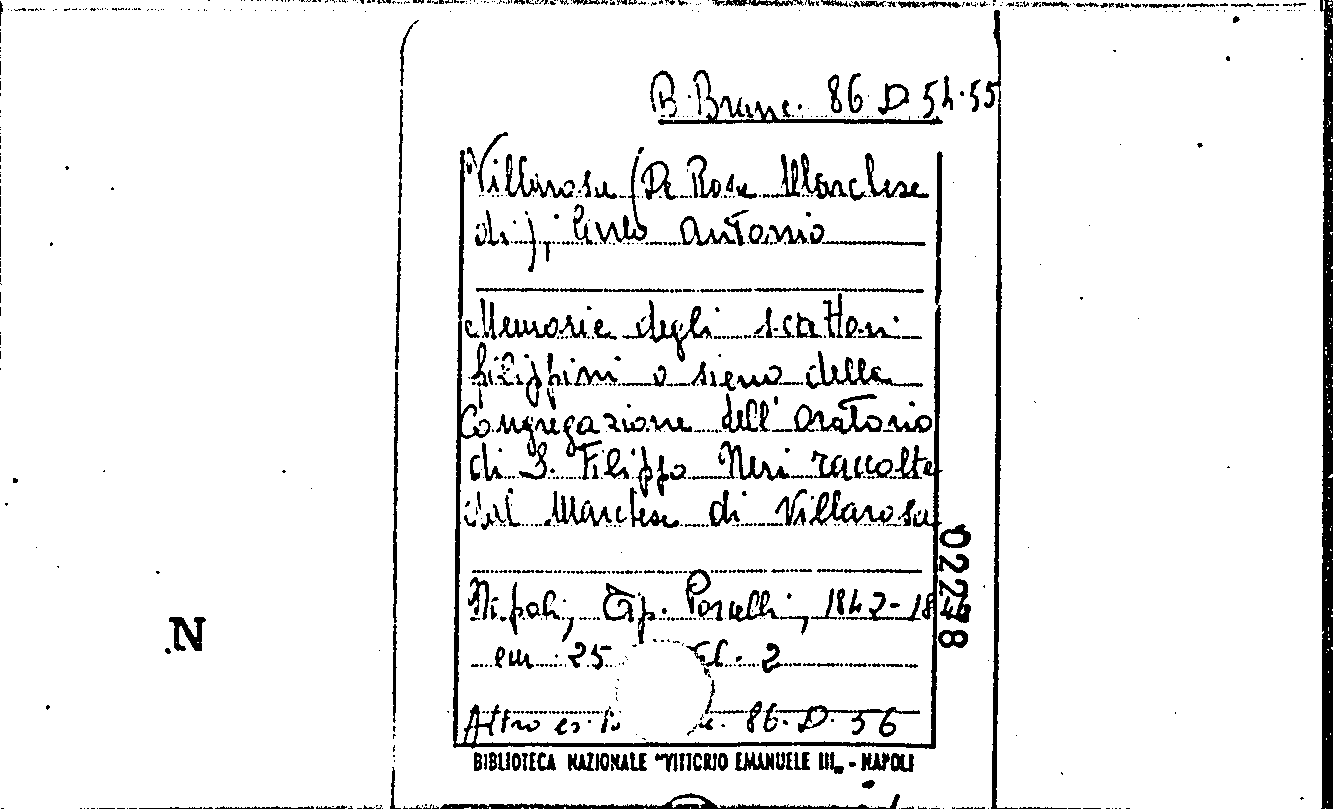 B. Branc. 86 D 54-55
Villarosa (De Rosa Marchese
di), Carlo Antonio
Memorie degli scrittori
filippini o sieno della
Congregazione dell' Oratorio
di S. Filippo Neri raccolte
dal Marchese di Villarosa
Napoli, Tip. Porcelli, 1842-1846
cm. 25 2
Altro es. B 86. D. 56
02278
N
BIBLIOTECA NAZIONALE "VITTORIO EMANUELE III„ - NAPOLI